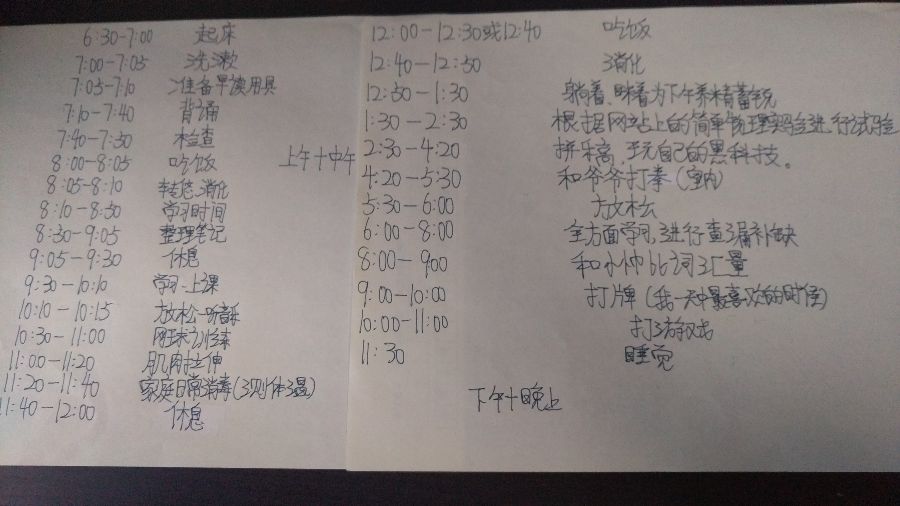 6:30-7:00 起床
7:00-7:05 洗漱
7:05-7:10 准备早读用具
7:10-7:40 背诵
7:40-7:50 检查
8:00-8:05 吃饭
上午十中午
8:05-8:10 转悠、消化
8:10-8:50 学习时间
8:50-9:05 整理笔记
9:05-9:30 休息
9:30-10:10 学习-上课
10:10-10:15 放松-听音乐
10:30-11:00 网球训练
11:00-11:20 肌肉拉伸
11:20-11:40 家庭日常消毒(测体温)
11:40-12:00 休息
12:00-12:30或12:40 吃饭
12:40-12:50 消化
12:50-1:30 躺着、眯着为下午养精蓄锐
1:30-2:30 根据网站上的简单物理实验进行试验
2:30-4:20 拼乐高,玩自己的黑科技。
4:20-5:30 和爷爷打拳(室内)
5:30-6:00 放松
6:00-8:00 全方面学习,进行查漏补缺
8:00-9:00 和小帅比词汇量
9:00-10:00 打牌(我一天中最喜欢的时候)
10:00-11:00 打游戏
11:30 睡觉
下午十晚上